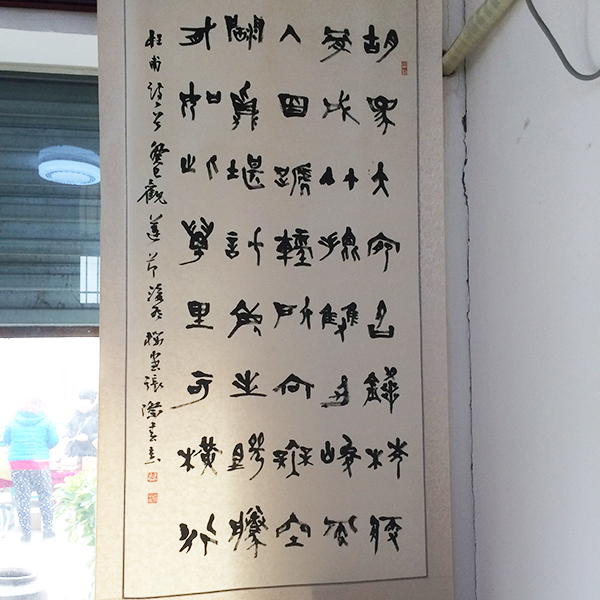 胡馬大宛名鋒棱瘦
骨成竹批雙耳峻風
入四蹄輕所向無空
闊真堪託死生驍騰
有如此萬里可橫行
杜甫詩一首癸巳觀蓮節